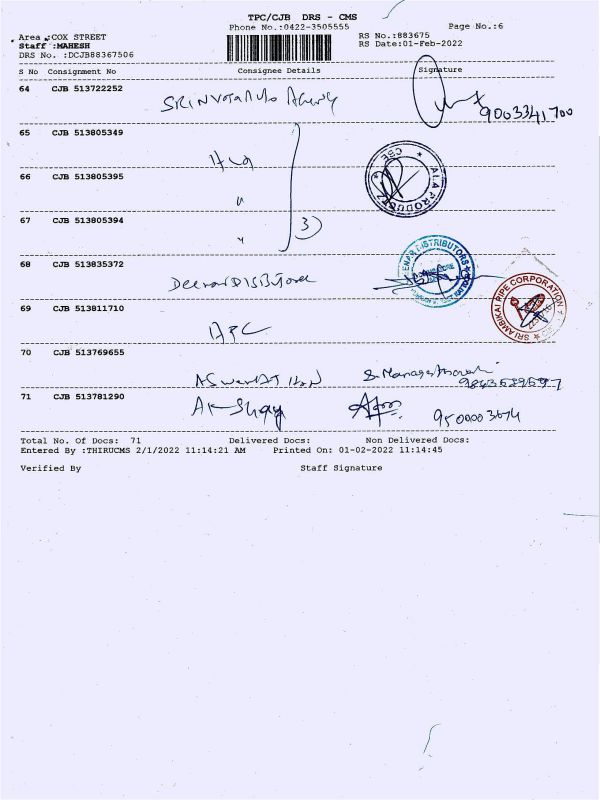 TPC/CJB DRS - CMS
Phone No.:0422-3505555 Page No.:6
Area :COX STREET RS No.:883675
Staff :MAHESH RS Date:01-Feb-2022
DRS No. :DCJB88367506
S No Consignment No Consignee Details Signature
64 CJB 513722252
9003341700
65 CJB 513805349
CSE
A.I.A PRODUCTZ
66 CJB 513805395
"
67 CJB 513805394
" 3)
68 CJB 513835372
DISTRIBUTORS
SRI AMBIKAI PIPE CORPORATION
69 CJB 513811710
APC
70 CJB 513769655
71 CJB 513781290
Akshay
Total No. Of Docs: 71 Delivered Docs: Non Delivered Docs:
Entered By :THIRUCMS 2/1/2022 11:14:21 AM Printed On: 01-02-2022 11:14:45
Verified By Staff Signature